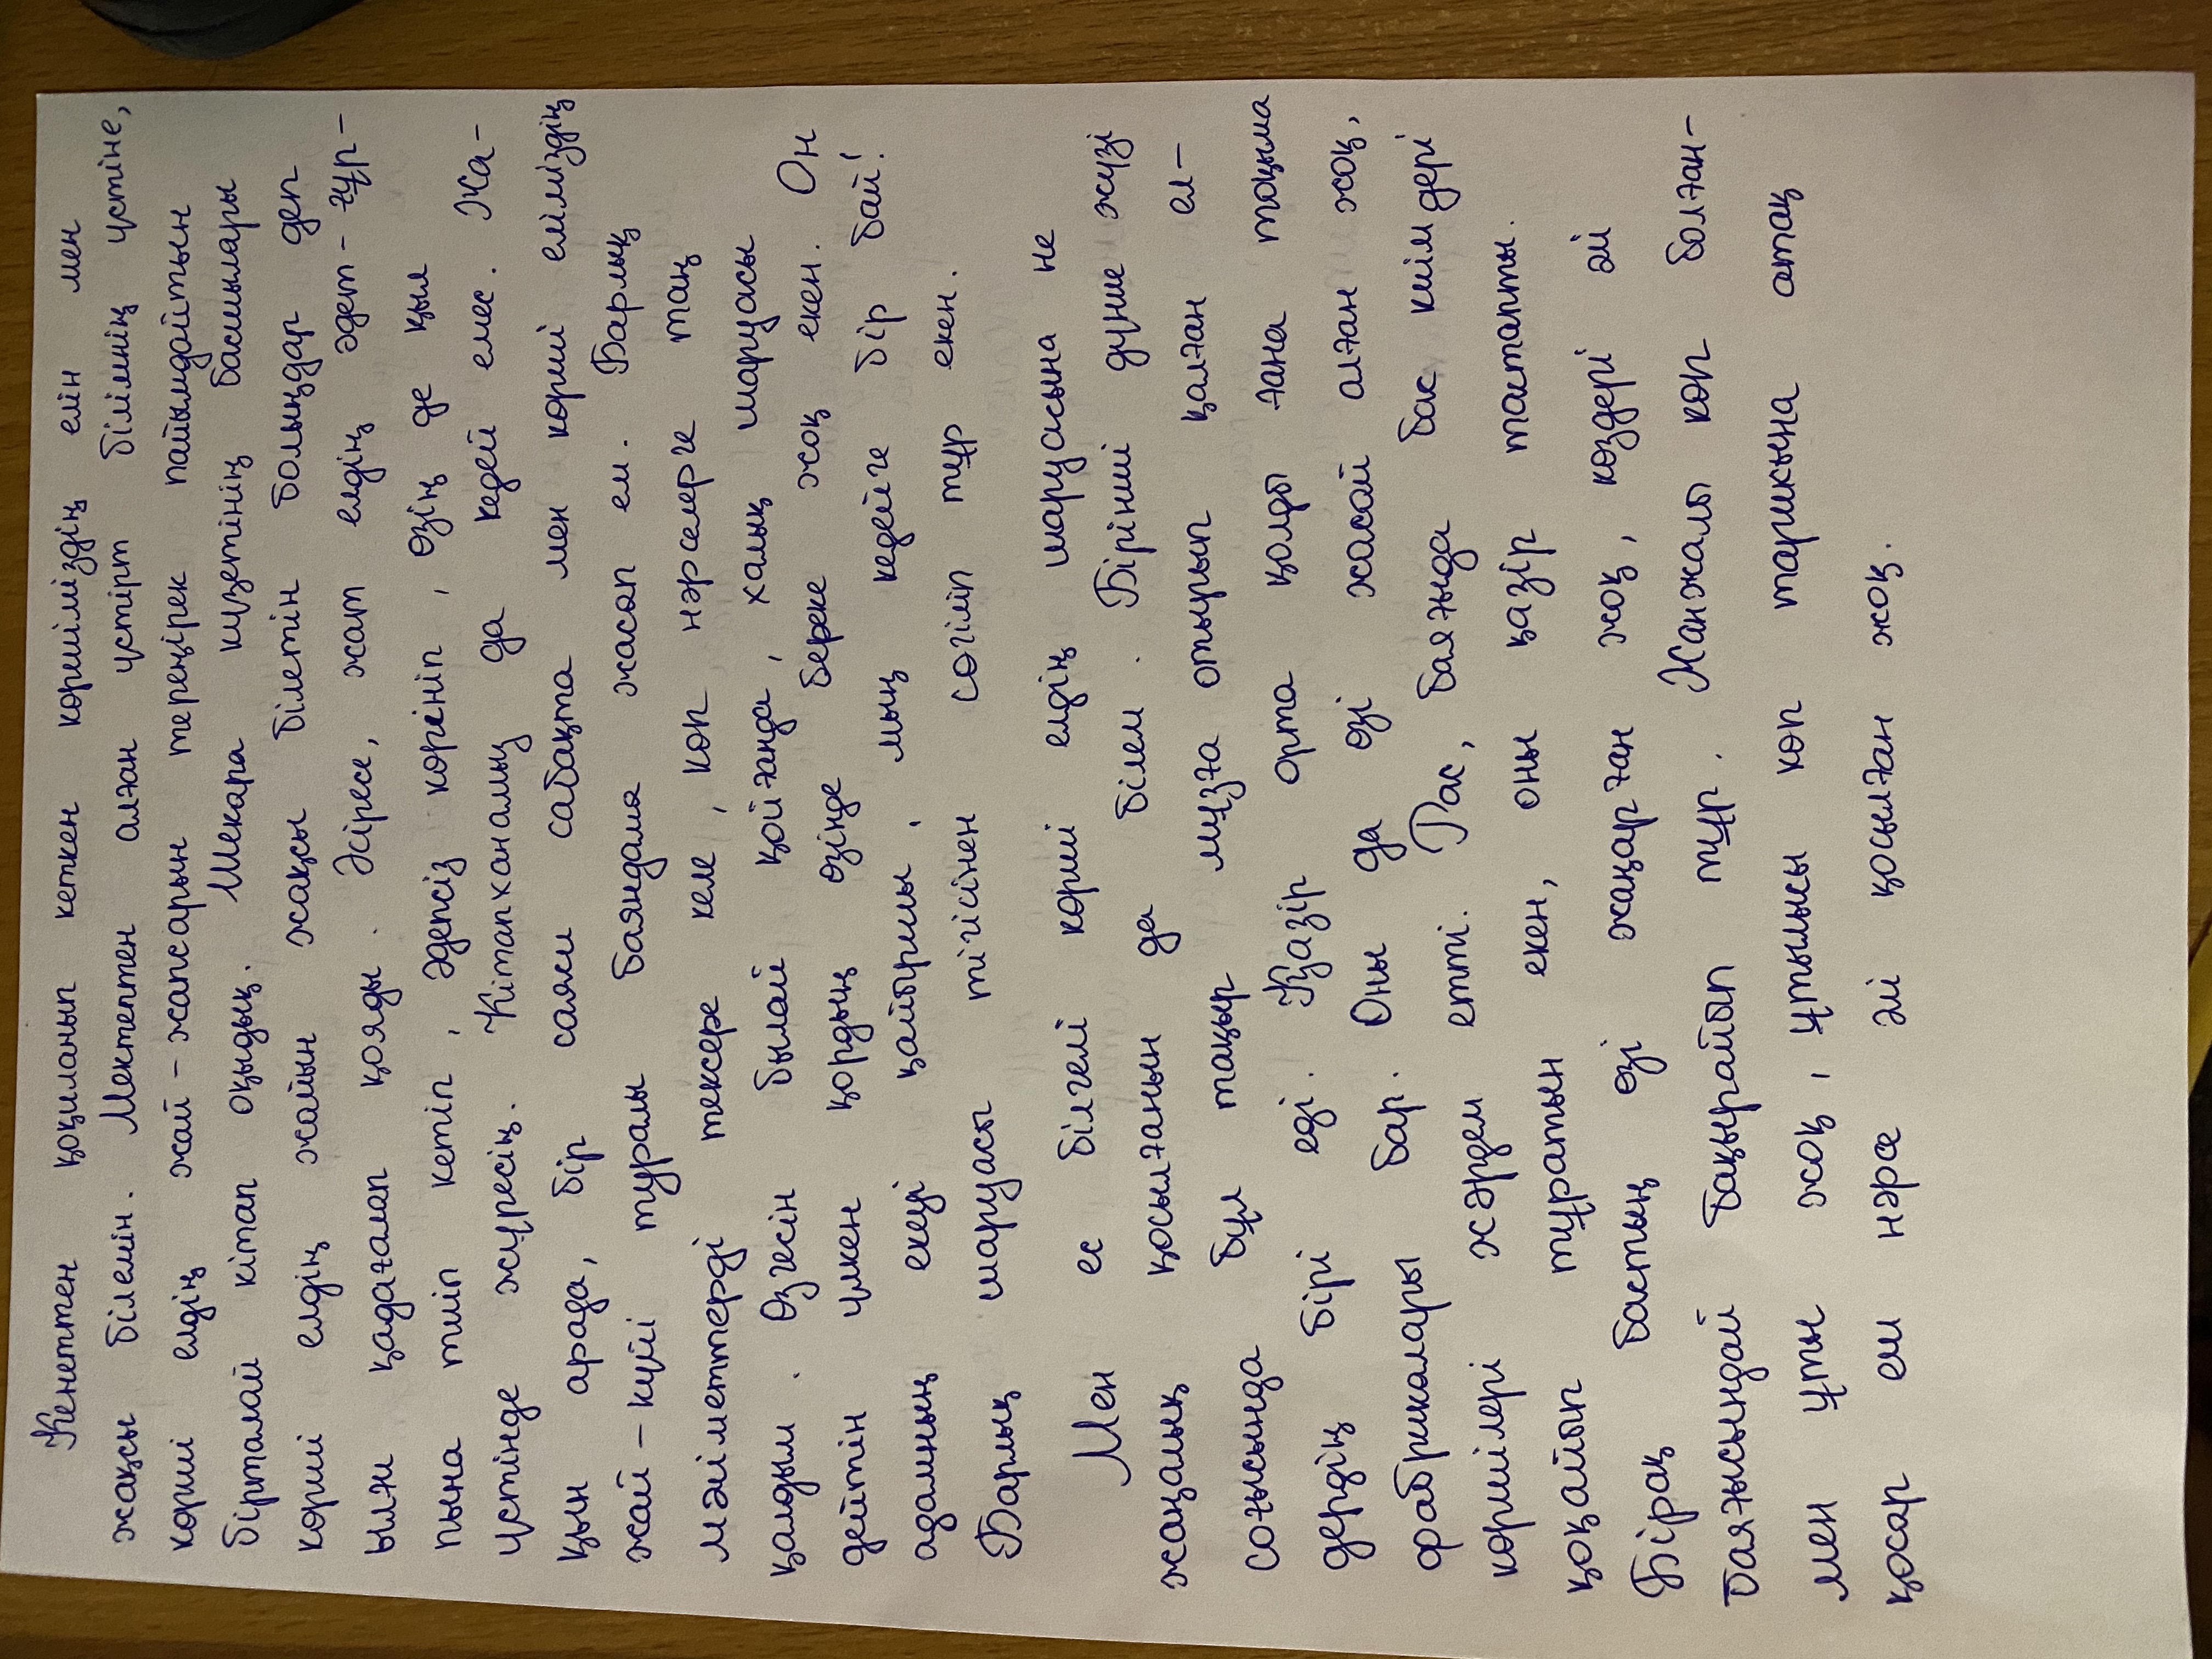 Кенеттен қоқиланып кеткен көршіміздің елін мен
жақсы білемін. Мектептен алған үстірт білімнің үстіне,
көрші елдің жай-жапсарын тереңірек пайымдайтын
бірталай кітап оқыдық. Шекара күзетінің басшылары
көрші елдің жайын жақсы білетін болыңдар деп
ылғи қадағалап қояды. Әсіресе, жат елдің әдет-ғұр-
пына тиіп кетіп, әдепсіз көрініп, өзің де қыл
үстінде жүресің. Кітапханамыз да кедей емес. Жа-
қын арада, бір саяси сабақта мен көрші еліміздің
жай-күйі туралы баяндама жасап ем. Барлық
мәліметтерді тексере келе, көп нәрселерге таң
қалдым. Өзгесін былай қойғанда, халық шаруасы
дейтін үлкен қордың өзінде береке жоқ екен. Он
адамның екеуі қайыршы, мың кедейге бір бай!
Барлық шаруасы тігісінен сөгіліп тұр екен.
Мен ес білгелі көрші елдің шаруасына не
жаңалық қосылғанын да білем. Бірінші дүние жүзі
соғысында бұл тақыр мұзға отырып қалған ел-
дердің бірі еді. Қазір орта қолды ғана тоқыма
фабрикалары бар. Оны да өзі жасай алған жоқ,
көршілері жәрдем етті. Рас, баяғыда бас киімдері
қоқайып тұратын екен, оны қазір тастапты.
Бірақ бастың өзі жаңарған жоқ, көздері әлі
баяғысындай бақырайып тұр. Жанжалы көп болған-
мен ұты жоқ, ұтылысы көп тарикына атақ
қосар еш нәрсе әлі қосылған жоқ.